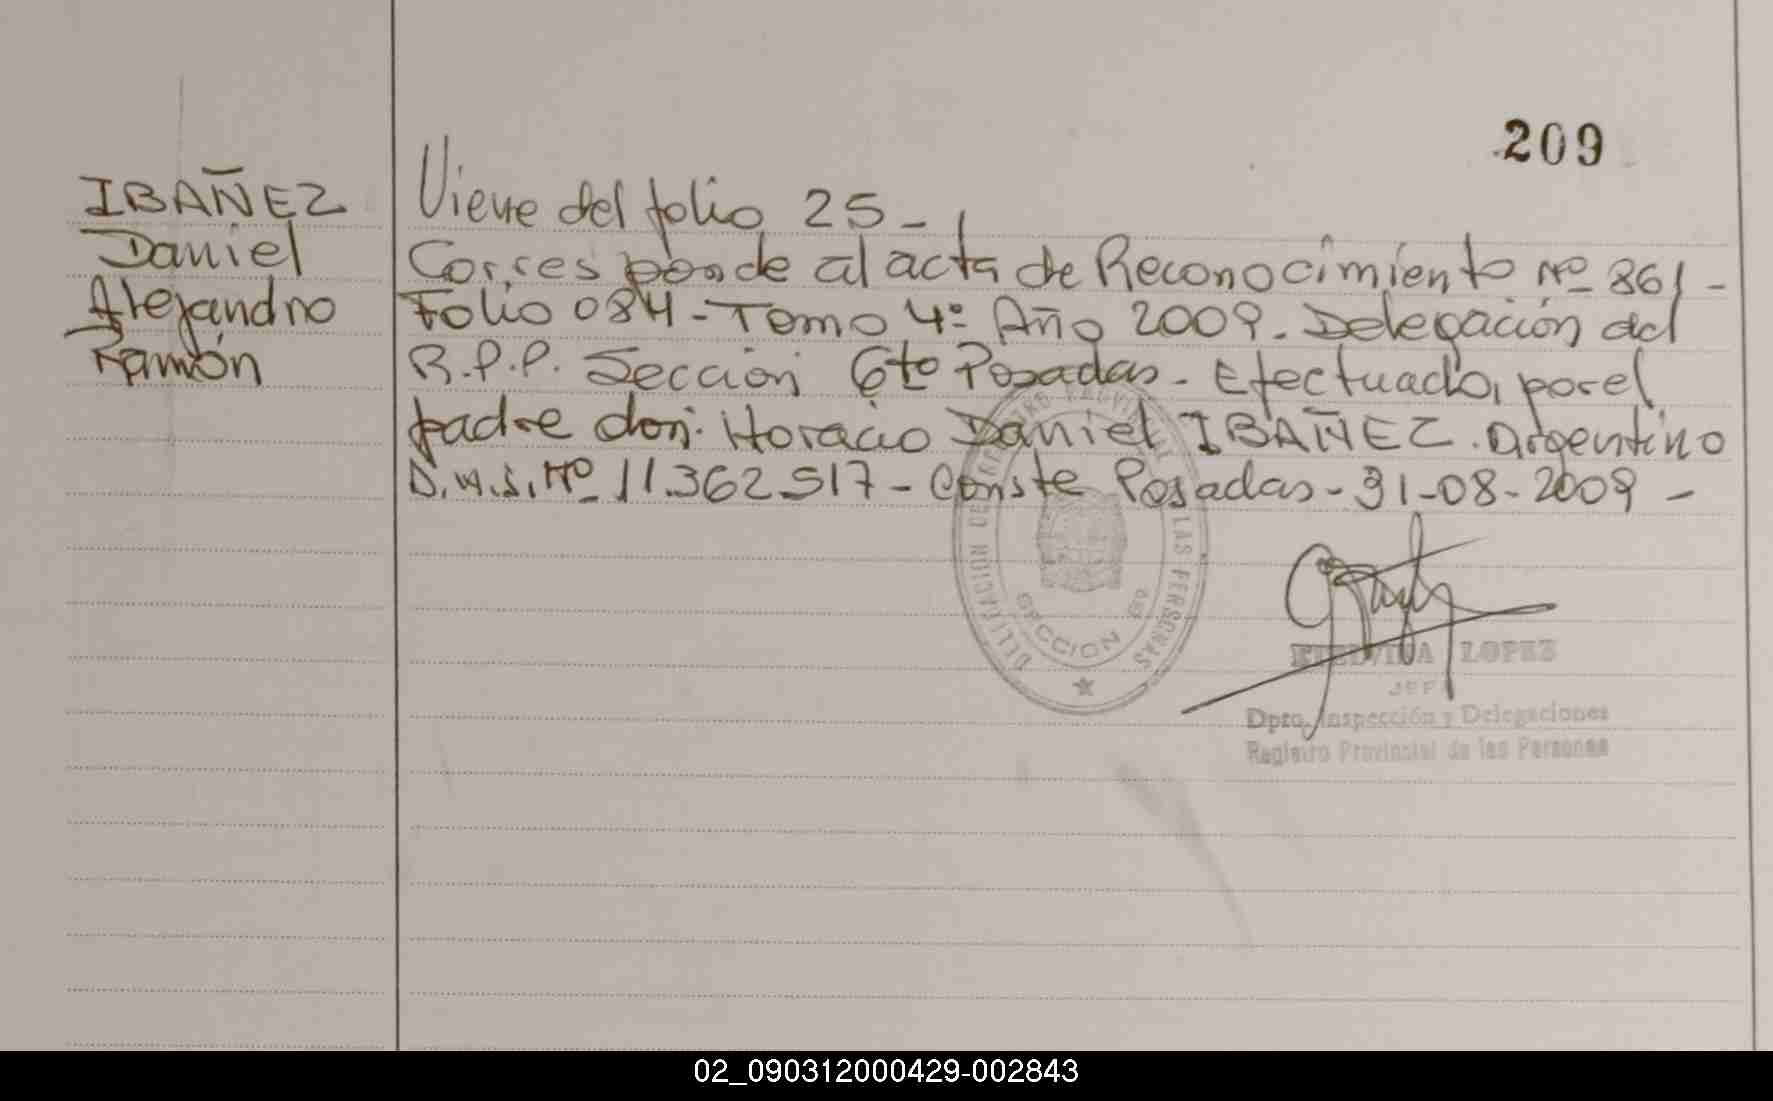 209
IBAÑEZ
Daniel
Alejandro
Ramón
Viene del folio 25 -
Corresponde al acta de Reconocimiento Nº 861 -
Folio 084 - Tomo 4º Año 2009. Delegación del
R.P.P. Sección 6to Posadas - Efectuado, por el
padre don: Horacio Daniel IBAÑEZ. Argentino
D.N.I. Nº 11.362.517 - Conste Posadas - 31-08-2009 -
DELEGACION DE REGISTRO PROVINCIAL DE LAS PERSONAS
SECCION
ETELVINA LOPEZ
JEFA
Dpto. Inspección y Delegaciones
Registro Provincial de las Personas
02_090312000429-002843